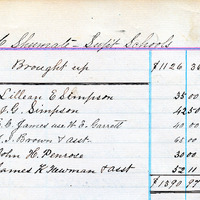 C Shumate – Supt Schools
Brought up $1126 3
Lillian E Simpson 35 00
T. G. Simpson 42 50
E. C. James as H. E. Garrett 45 0
T. J. Brown & asst 65 0
John H. Penrose 30 00
James K Newman & asst 52 11
$1390 97